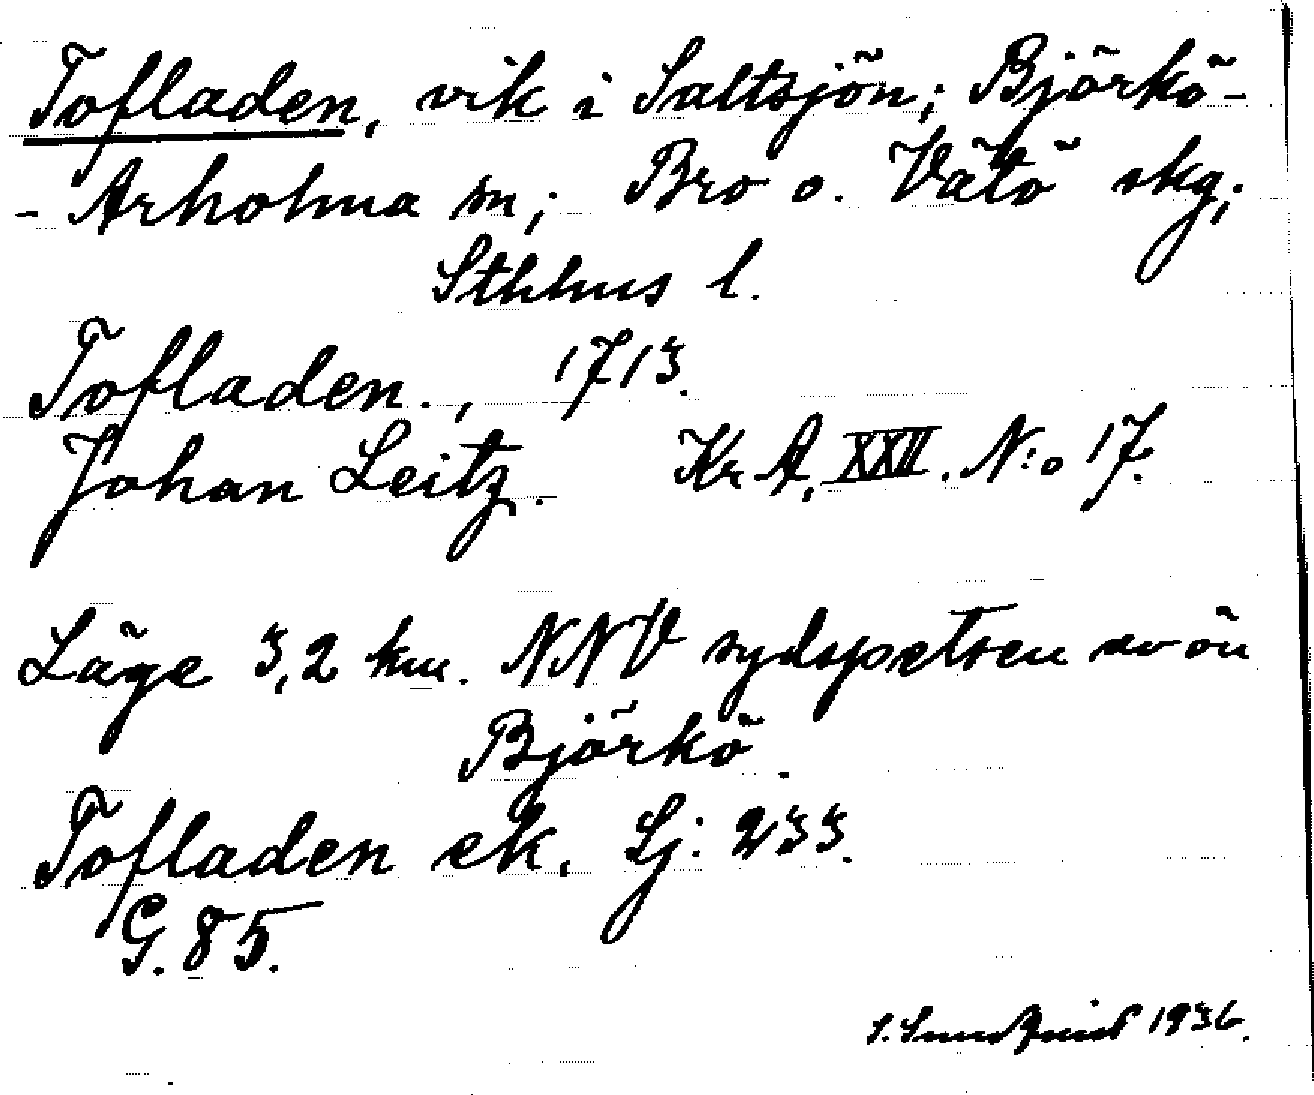 Tofladen, vik i Saltsjön; Björkö-
-Arholma sn; Bro o. Vätö skg;
Sthlms l.
Tofladen., 1713.
Johan Leitz. Kr. A, XXII. N:o 17.
Läge 3,2 km. NNV sydspetsen av ön
Björkö.
Tofladen ek. Lj: 233.
G. 85.
S. Sundqvist 1936.